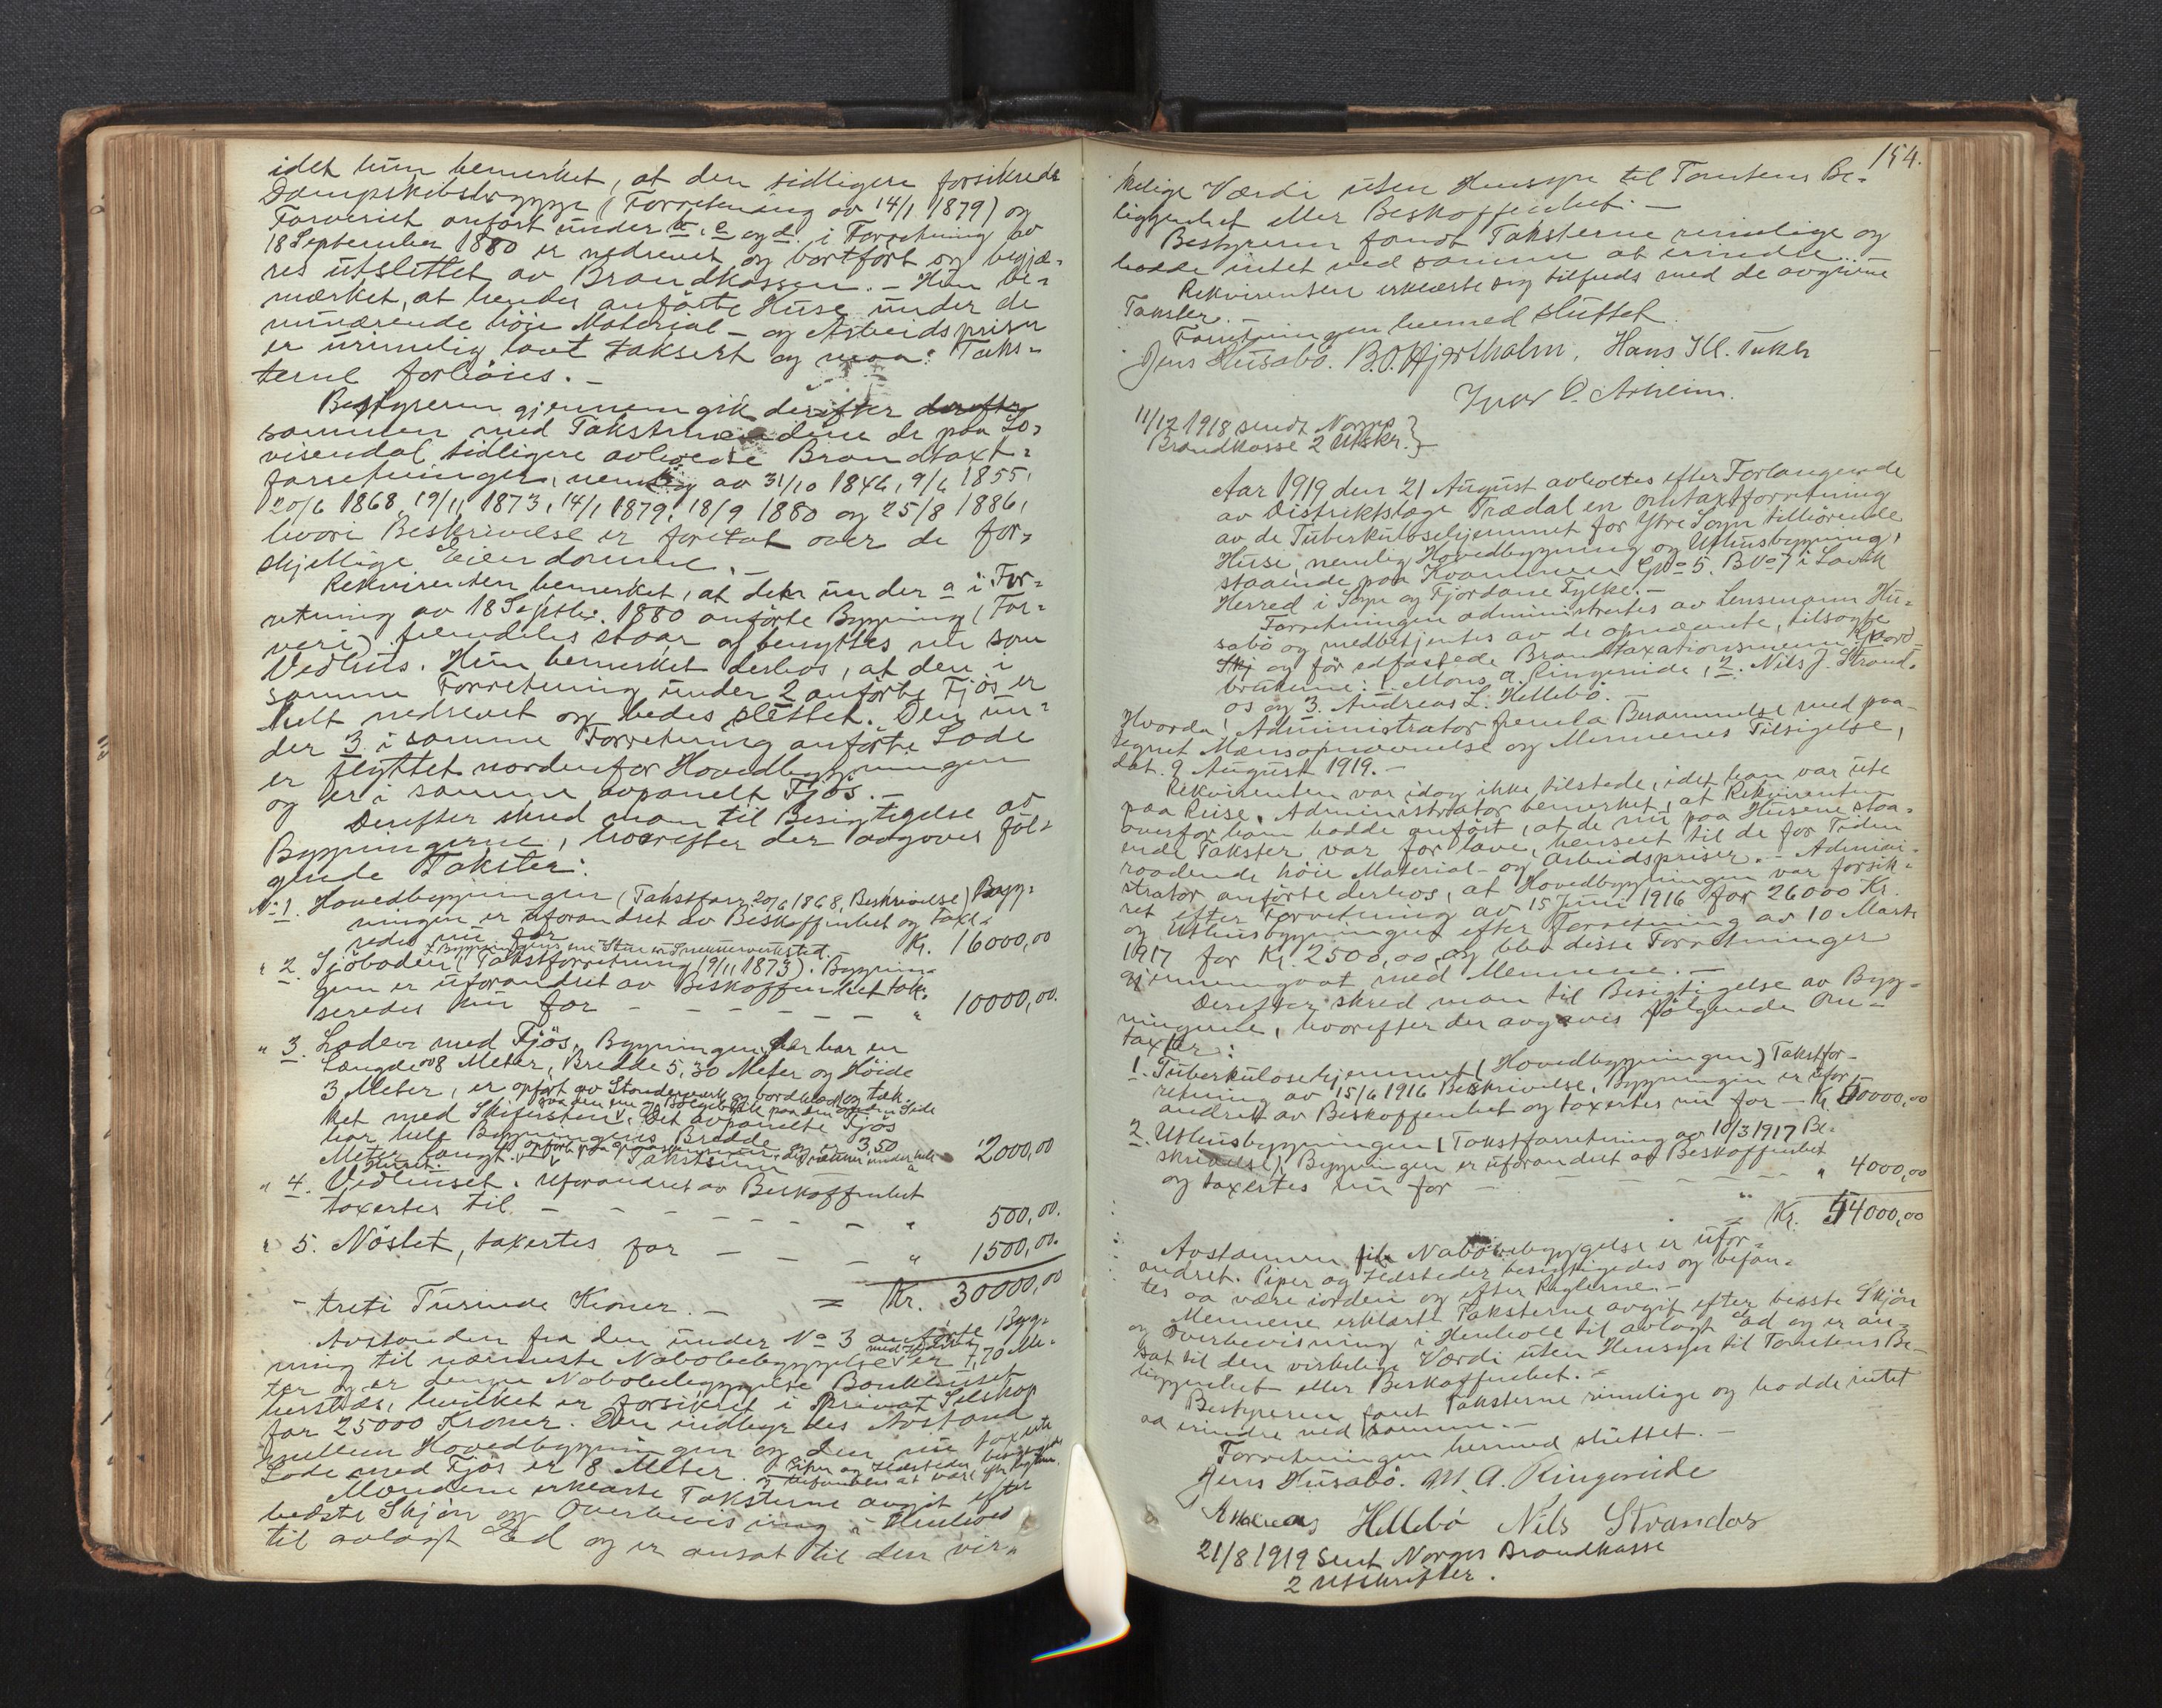 idet hun bemerket, at den tidligere forsikrede
Dampskibsbrygge (Forretning av 14/1 1879) og
Farveriet anført under b. c og d. i Forretning av
18 September 1880 er nedrevet og bortført og begjæ-
res utslettet av Brandkassen. - Hun be-
mærket, at hendes anførte Huse under de
nuværende høie Material- og Arbeidspriser
er urimelig lavt taksert og maa Taks-
terne forhøies. -
Bestyreren gjennemgik derefter derefter
sammen med Takstmændene de paa Lo-
visendal tidligere avholdte Brandtaxt-
forretninger, nemlig av 31/10 1846, 9/6 1855,
20/6 1868, 19/11 1873, 14/1 1879, 18/9 1880 og 25/8 1886,
hvori Beskrivelse er foretat over de for-
skjellige Eiendomme. -
Rekvirenten bemerket, at den under a i For-
retning av 18 Septbr. 1880 anførte Bygning (Far-
veri) fremdeles staar og benyttes nu som
Vedhus. Hun bemerket derhos, at den i
samme Forretning under 2 anførte Fjøs er
helt nedrevet og bedes slettet. Den un-
der 3 i samme Forretning anførte Lade
er flyttet nordenfor Hovedbygningen
og er i samme avpanelt Fjøs. -
Derefter skred man til Besigtigelse av
Bygningerne, hvorefter der avgaves føl-
gende Takster:
No 1. Hovedbygningen (Takstforr. 20/6 1868, Beskrivelse) Byg-
ningen er uforandret av Beskaffenhet og takse-
redes nu for Kr. 16000,00
I Bygningens ene Stue er Snekkerverksted.
" 2. Sjøboden (Takstforretning 19/11 1873). Bygnin-
gen er uforandret av Beskaffenhet tak-
seredes nu for - - - - - - " 10000,00.
" 3. Laden med Fjøs. Bygningen her har en
Længde av 8 Meter, Bredde 5,30 Meter og Høide
3 Meter, er opført av Stenderverk og bordklædd og tæk-
ket med Skifersten paa den ene og Bølgeblik paa den anden Side. Det avpanelte Fjøs
har hele Bygningens Bredde og er 3,50
Meter langt. Takstsum " 2000,00
" 4. Vedhuset. Uforandret av Beskaffenhet
taxertes til - - - - - - " 500,00.
" 5. Nøstet, taxertes for - - - " 1500,00.
- treti Tusinde Kroner. - = Kr. 30000,00
Avstanden fra den under No 3 anførte Byg-
ning til nærmeste Nabobebyggelse er 7,70 Me-
ter og er denne Nabobebyggelse Bankhuset
hersteds, hvilket er forsikret i Privat Selskap
for 25000 Kroner. Den indbyrdes Avstand
mellem Hovedbygningen og den nu taxerte
Lade med Fjøs er 8 Meter. Piper og Ildsteder besigtigedes
og befandtes at være efter Reglerne.
Mændene erklærte Taksterne avgit efter
bedste Skjøn og Overbevisning i Henhold
til avlagt Ed og er ansat til den vir-
154.
kelige Værdi uten Hensyn til Tomtens Be-
liggenhet eller Beskaffenhet. -
Bestyreren fandt Taksterne rimelige og
hadde intet ved samme at erindre.
Rekvirenten erklærte sig tilfreds med de avgivne
Takster. -
Forretningen hermed sluttet.
Jens Husabø. B.O. Hjertholm, Hans Kl. Tukh
Ivar O. Arheim.
11/12 1918 sendt Norges
Brandkasse 2 Utskr. }
Aar 1919 den 21 August avholtes efter Forlangende
av Distriktslæge Trædal en omtaxtforretning
av de Tuberkulosehjemmet for Ytre Sogn tilhørende
Huse, nemlig Hovedbygning og Uthusbygning,
staaende paa Kvammen Gno 5. Bno 7 i Lavik
Herred i Sogn og Fjordane Fylke. -
Forretningen administrertes av Lensmann Hu-
sabø og medbetjentes av de opnævnte, tilsagte
Skj og før edfæstede Brandtaxationsmenn Gaard-
brukerne: 1. Mons A. Ringereide, 2. Nils J. Strand-
os og 3. Andreas L. Hellebø.
Hvorda, Administrator fremla Berammelse med paa-
tegnet Mænsopnævnelse og Mennenes Tilsigelse,
dat. 9 August 1919. -
Rekvirenten var idag ikke tilstede, idet han var ute
paa Reise. Administrator bemerket, at Rekvirenten
overfor ham hadde anført, at de nu paa Husene staa-
ende Takster var for lave, hensett til de for Tiden
raadende høie Material- og Arbeidspriser. - Admini-
strator anførte derhos, at Hovedbygningen var forsik-
ret efter Forretning av 15 Juni 1916 for 26000 Kr.
og Uthusbygningen efter Forretning av 10 Marts
1917 for Kr. 2500,00, og blev disse Forretninger
gjennemgaat med Mennene. -
Derefter skred man til Besigtigelse av Byg-
ningerne, hvorefter der avgaves følgende Om-
taxter:
1. Tuberkulosehjemmet (Hovedbygningen) Takstfor-
retning av 15/6 1916 Beskrivelse, Bygningen er ufor-
andret av Beskaffenhet og taxertes nu for - Kr. 50000,00
2. Uthusbygningen (Takstforretning av 10/3 1917 Be-
skrivelse). Bygningen er uforandret av Beskaffenhet
og taxertes nu for - - - - - - " 4000,00
= Kr. 54000,00
Avstanden til Nabobebyggelse er ufor-
andret. Piper og Ildsteder besigtigedes og befan-
tes aa være iorden og efter Reglerne. -
Mennene erklærte Taksterne avgit efter beste Skjøn
og Overbevisning i Henhold til avlagt Ed og er an-
sat til den virkelige Værdi uten Hensyn til Tomtens Be-
liggenhet eller Beskaffenhet. -
Bestyreren fant Taksterne rimelige og hadde intet
aa erindre ved samme. -
Forretningen hermed sluttet. -
Jens Husabø. M. A. Ringereide
Andreas Hellebø Nils Strandos
21/8 1919 Sent Norges Brandkasse
2 Utskrifter.